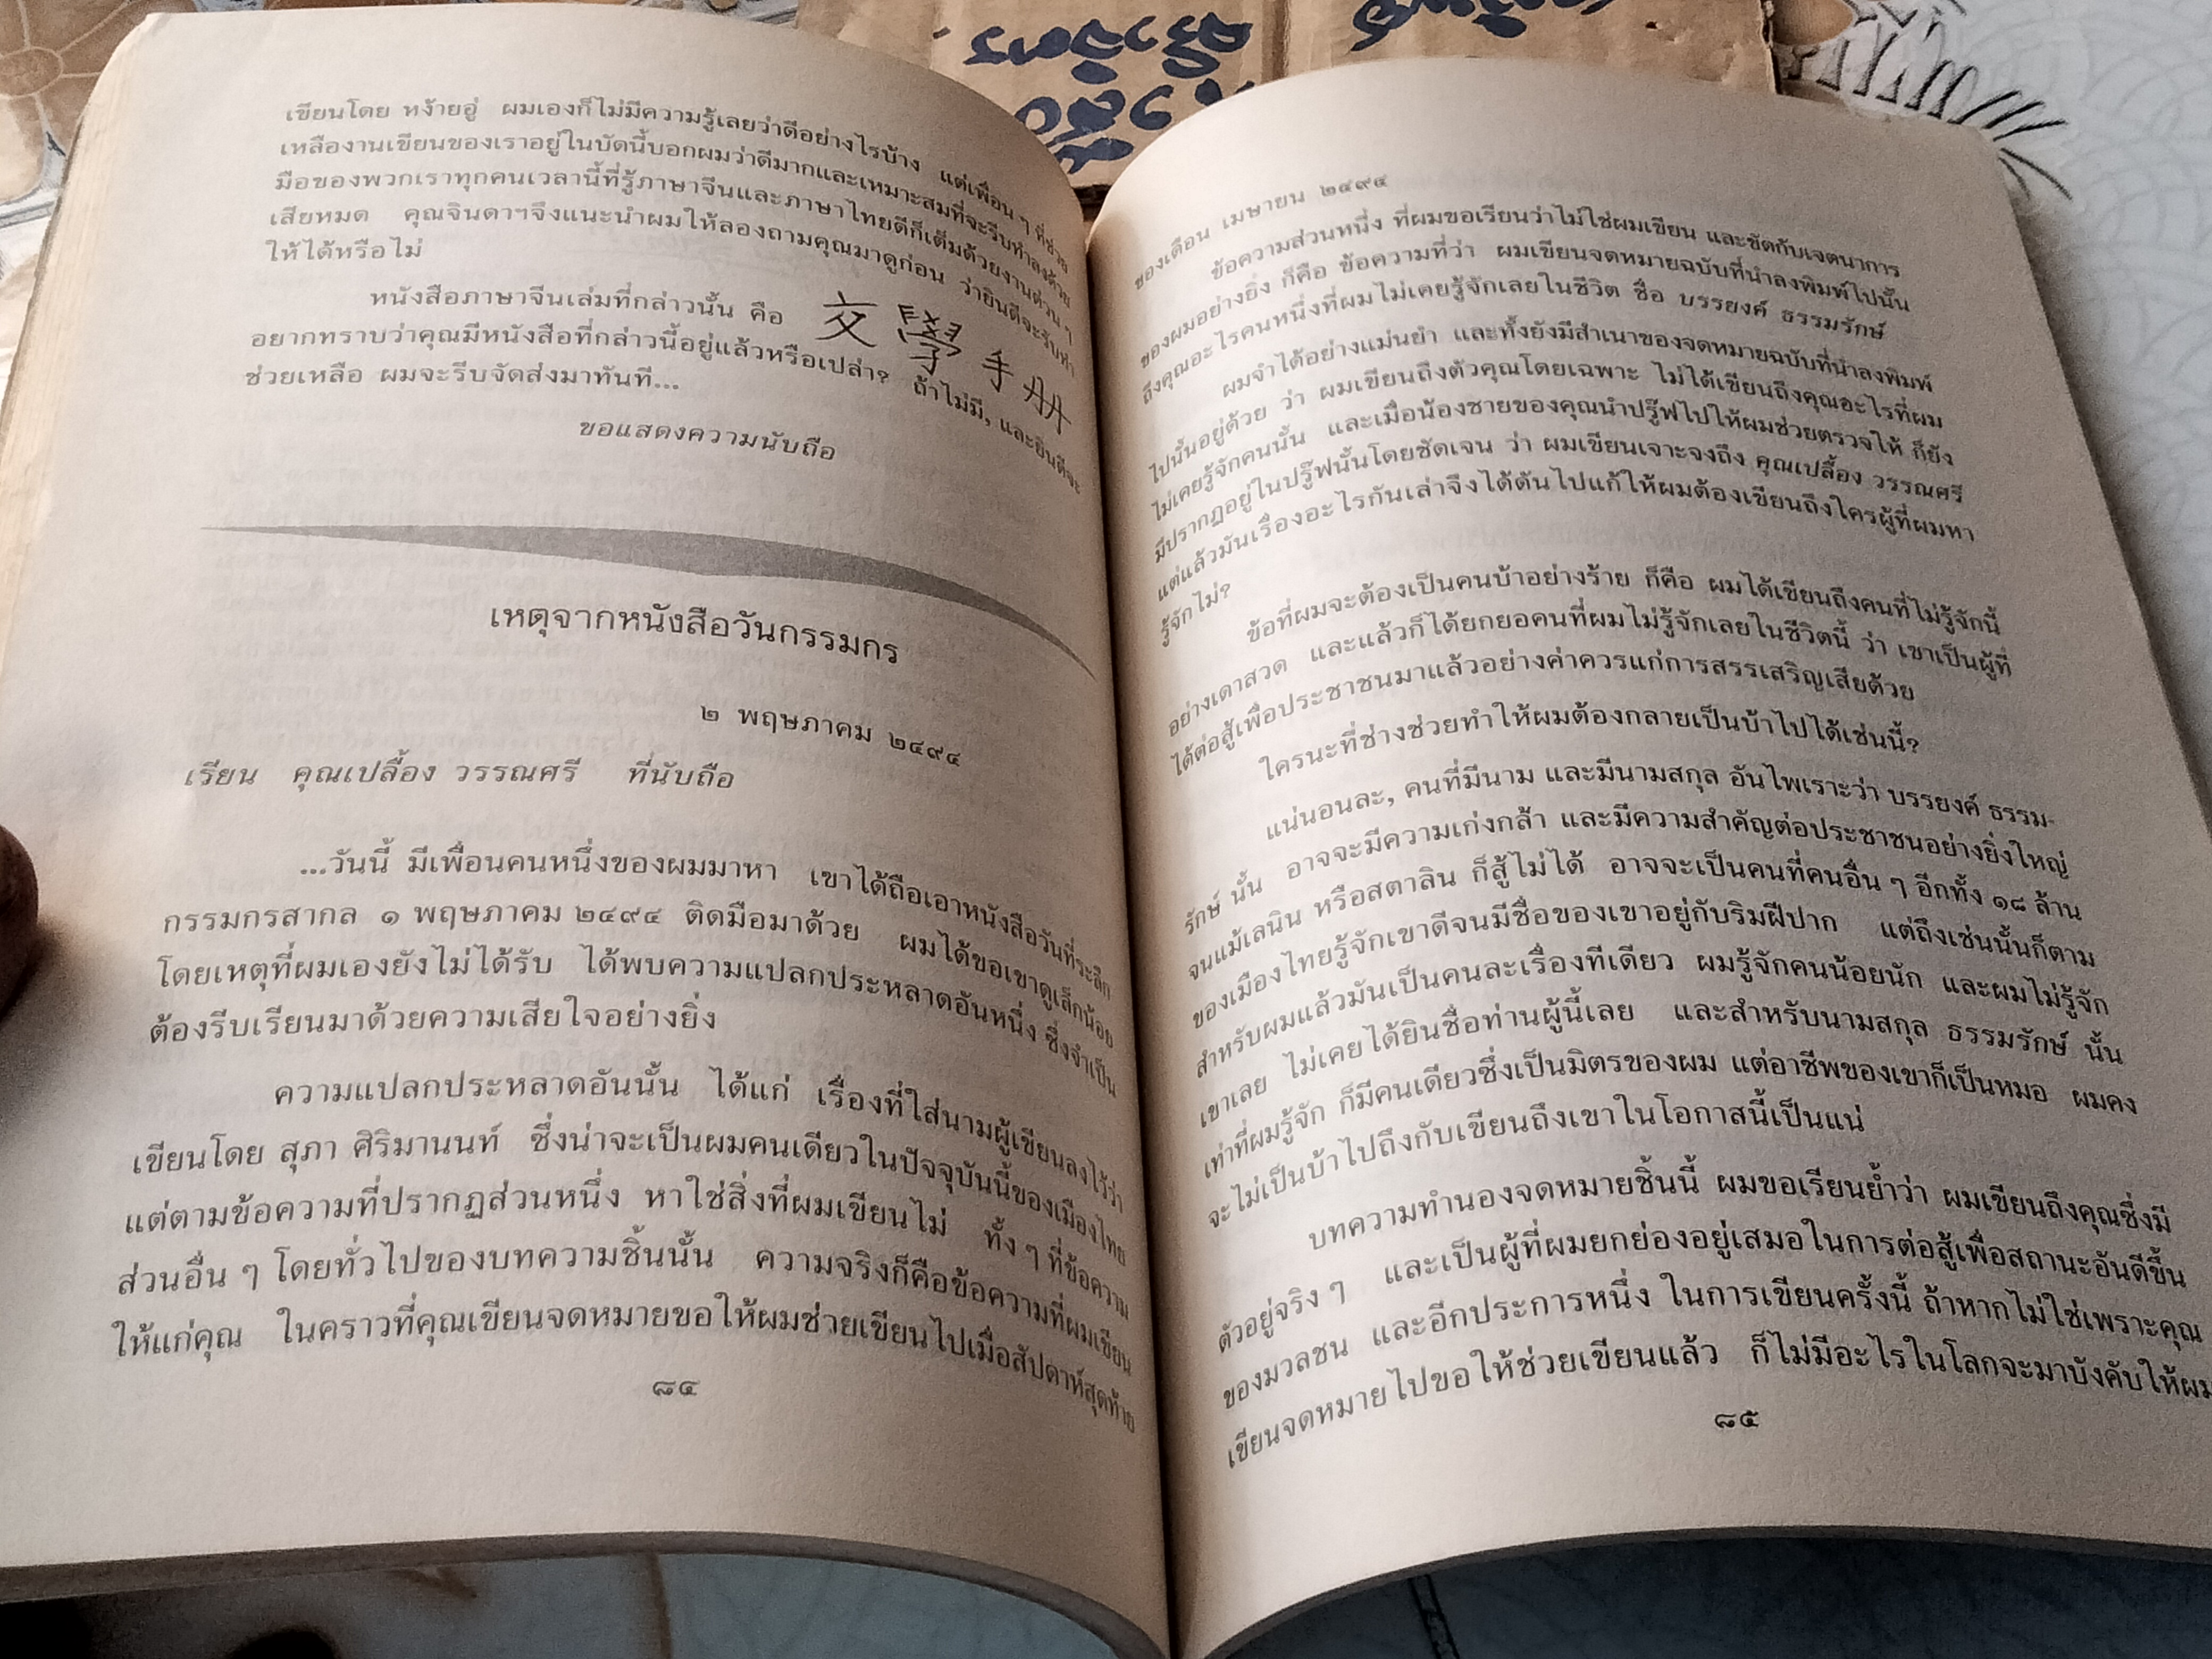 เขียนโดย หง้ายอู่ ผมเองก็ไม่มีความรู้เลยว่าดีอย่างไรบ้าง แต่เพื่อน ๆ ที่ช่วย
เหลืองานเขียนของเราอยู่ในบัดนี้บอกผมว่าดีมากและเหมาะสมที่จะรีบทำลงด้วย
มือของพวกเราทุกคนเวลานี้ที่รู้ภาษาจีนและภาษาไทยดีก็เต็มด้วยงานด่วน ๆ
เสียหมด คุณจินดาฯจึงแนะนำผมให้ลองถามคุณมาดูก่อน ว่ายินดีจะรับทำ
ให้ได้หรือไม่
หนังสือภาษาจีนเล่มที่กล่าวนั้น คือ 文學手册
อยากทราบว่าคุณมีหนังสือที่กล่าวนี้อยู่แล้วหรือเปล่า? ถ้าไม่มี, และยินดีจะ
ช่วยเหลือ ผมจะรีบจัดส่งมาทันที...
ขอแสดงความนับถือ
เหตุจากหนังสือวันกรรมกร
๒ พฤษภาคม ๒๔๙๔
เรียน คุณเปลื้อง วรรณศรี ที่นับถือ
...วันนี้ มีเพื่อนคนหนึ่งของผมมาหา เขาได้ถือเอาหนังสือวันที่ระลึก
กรรมกรสากล ๑ พฤษภาคม ๒๔๙๔ ติดมือมาด้วย ผมได้ขอเขาดูเล็กน้อย
โดยเหตุที่ผมเองยังไม่ได้รับ ได้พบความแปลกประหลาดอันหนึ่ง ซึ่งจำเป็น
ต้องรีบเรียนมาด้วยความเสียใจอย่างยิ่ง
ความแปลกประหลาดอันนั้น ได้แก่ เรื่องที่ใส่นามผู้เขียนลงไว้ว่า
เขียนโดย สุภา ศิริมานนท์ ซึ่งน่าจะเป็นผมคนเดียวในปัจจุบันนี้ของเมืองไทย
แต่ตามข้อความที่ปรากฏส่วนหนึ่ง หาใช่สิ่งที่ผมเขียนไม่ ทั้ง ๆ ที่ข้อความ
ส่วนอื่น ๆ โดยทั่วไปของบทความชิ้นนั้น ความจริงก็คือข้อความที่ผมเขียน
ให้แก่คุณ ในคราวที่คุณเขียนจดหมายขอให้ผมช่วยเขียนไปเมื่อสัปดาห์สุดท้าย
๘๔
ของเดือน เมษายน ๒๔๙๔
ข้อความส่วนหนึ่ง ที่ผมขอเรียนว่าไม่ใช่ผมเขียน และขัดกับเจตนาการ
ของผมอย่างยิ่ง ก็คือ ข้อความที่ว่า ผมเขียนจดหมายฉบับที่นำลงพิมพ์ไปนั้น
ถึงคุณอะไรคนหนึ่งที่ผมไม่เคยรู้จักเลยในชีวิต ชื่อ บรรยงค์ ธรรมรักษ์
ผมจำได้อย่างแม่นยำ และทั้งยังมีสำเนาของจดหมายฉบับที่นำลงพิมพ์
ไปนั้นอยู่ด้วย ว่า ผมเขียนถึงตัวคุณโดยเฉพาะ ไม่ได้เขียนถึงคุณอะไรที่ผม
ไม่เคยรู้จักคนนั้น และเมื่อน้องชายของคุณนำปรู๊ฟไปให้ผมช่วยตรวจให้ ก็ยัง
มีปรากฏอยู่ในปรู๊ฟนั้นโดยชัดเจน ว่า ผมเขียนเจาะจงถึง คุณเปลื้อง วรรณศรี
แต่แล้วมันเรื่องอะไรกันเล่าจึงได้ดันไปแก้ให้ผมต้องเขียนถึงใครผู้ที่ผมหา
รู้จักไม่?
ข้อที่ผมจะต้องเป็นคนบ้าอย่างร้าย ก็คือ ผมได้เขียนถึงคนที่ไม่รู้จักนี้
อย่างเดาสวด และแล้วก็ได้ยกยอคนที่ผมไม่รู้จักเลยในชีวิตนี้ ว่า เขาเป็นผู้ที่
ได้ต่อสู้เพื่อประชาชนมาแล้วอย่างค่าควรแก่การสรรเสริญเสียด้วย
ใครนะที่ช่างช่วยทำให้ผมต้องกลายเป็นบ้าไปได้เช่นนี้?
แน่นอนละ, คนที่มีนาม และมีนามสกุล อันไพเราะว่า บรรยงค์ ธรรม-
รักษ์ นั้น อาจจะมีความเก่งกล้า และมีความสำคัญต่อประชาชนอย่างยิ่งใหญ่
จนแม้เลนิน หรือสตาลิน ก็สู้ไม่ได้ อาจจะเป็นคนที่คนอื่น ๆ อีกทั้ง ๑๘ ล้าน
ของเมืองไทยรู้จักเขาดีจนมีชื่อของเขาอยู่กับริมฝีปาก แต่ถึงเช่นนั้นก็ตาม
สำหรับผมแล้วมันเป็นคนละเรื่องทีเดียว ผมรู้จักคนน้อยนัก และผมไม่รู้จัก
เขาเลย ไม่เคยได้ยินชื่อท่านผู้นี้เลย และสำหรับนามสกุล ธรรมรักษ์ นั้น
เท่าที่ผมรู้จัก ก็มีคนเดียวซึ่งเป็นมิตรของผม แต่อาชีพของเขาก็เป็นหมอ ผมคง
จะไม่เป็นบ้าไปถึงกับเขียนถึงเขาในโอกาสนี้เป็นแน่
บทความทำนองจดหมายชิ้นนี้ ผมขอเรียนย้ำว่า ผมเขียนถึงคุณซึ่งมี
ตัวอยู่จริง ๆ และเป็นผู้ที่ผมยกย่องอยู่เสมอในการต่อสู้เพื่อสถานะอันดีขึ้น
ของมวลชน และอีกประการหนึ่ง ในการเขียนครั้งนี้ ถ้าหากไม่ใช่เพราะคุณ
เขียนจดหมายไปขอให้ช่วยเขียนแล้ว ก็ไม่มีอะไรในโลกจะมาบังคับให้ผม
๘๕